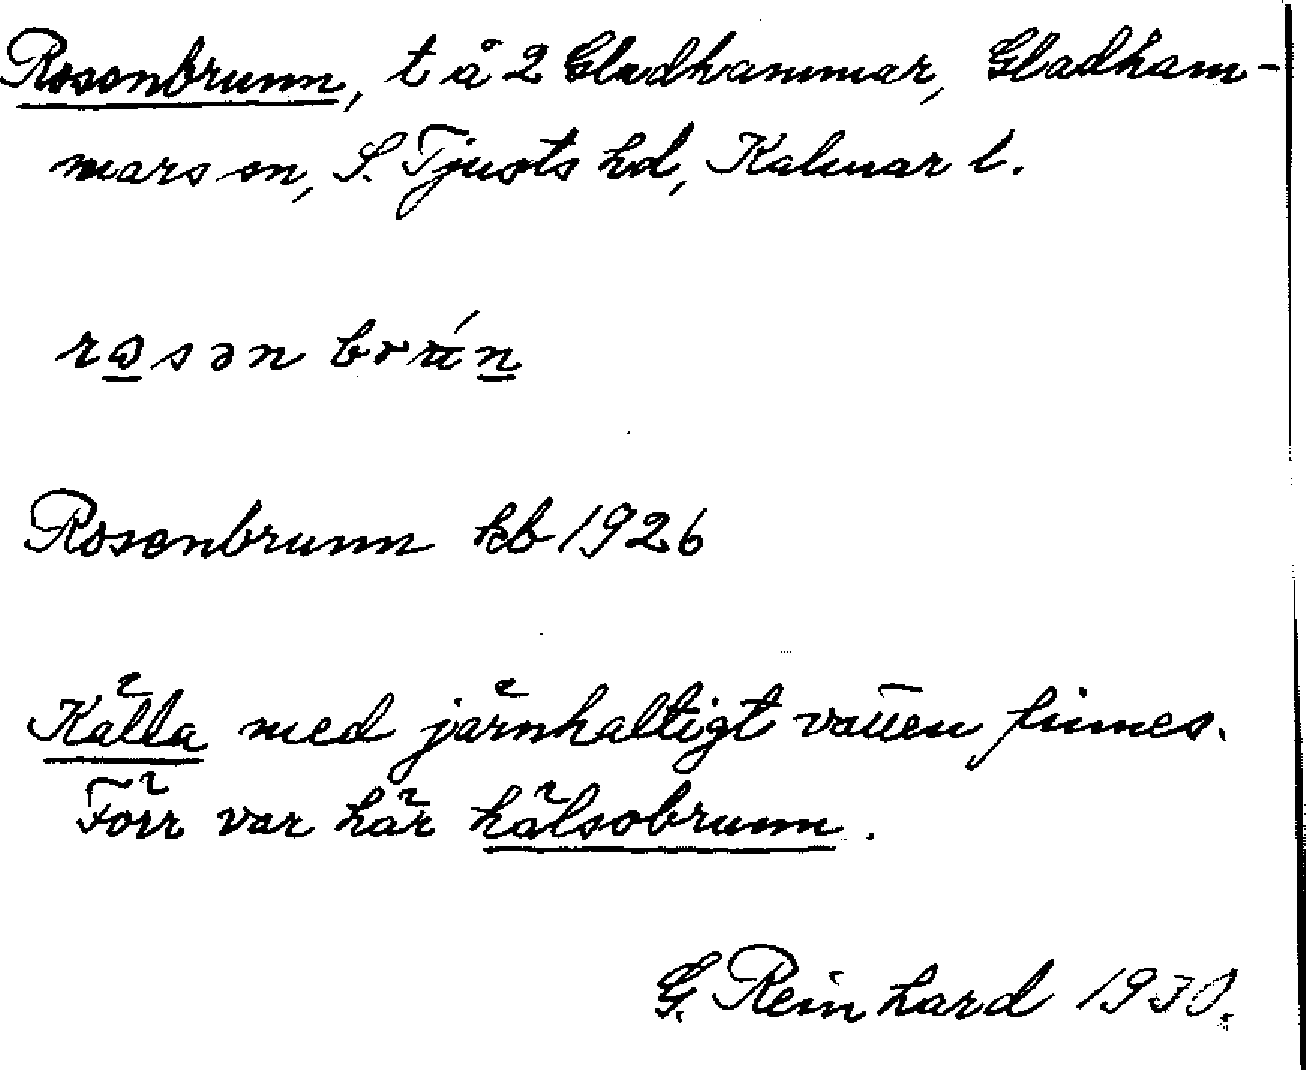 Rosenbrunn, t å 2 Gladhammar, Gladham-
mars sn, S. Tjusts hd, Kalmar l.
Rosenbrunn kb 1926
Källa med järnhaltigt vatten finnes.
Förr var här hälsobrunn.
G. Reinhard 1930.